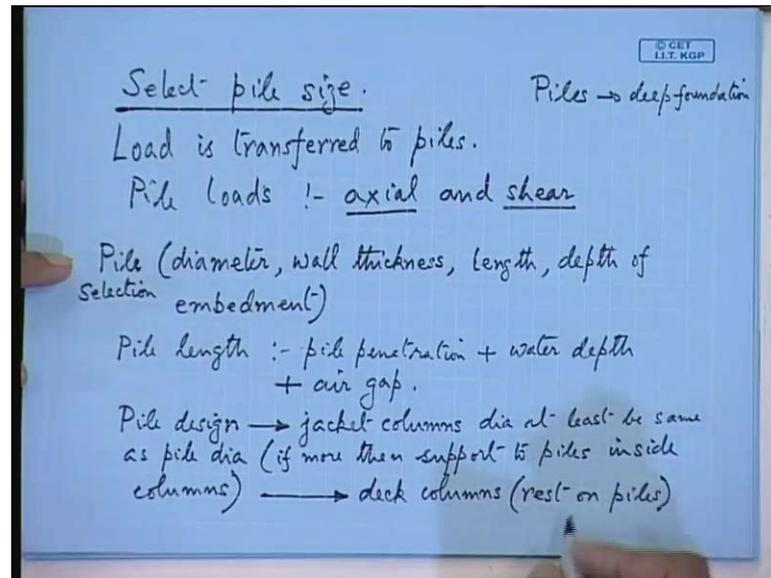 © CET
I.I.T. KGP
Select pile size.
Piles → deep foundation
Load is transferred to piles.
Pile loads :- axial and shear
Pile (diameter, wall thickness, length, depth of
Selection embedment)
Pile length :- pile penetration + water depth
+ air gap.
Pile design → jacket columns dia at least be same
as pile dia (if more then support to piles inside
columns) → deck columns (rest on piles)